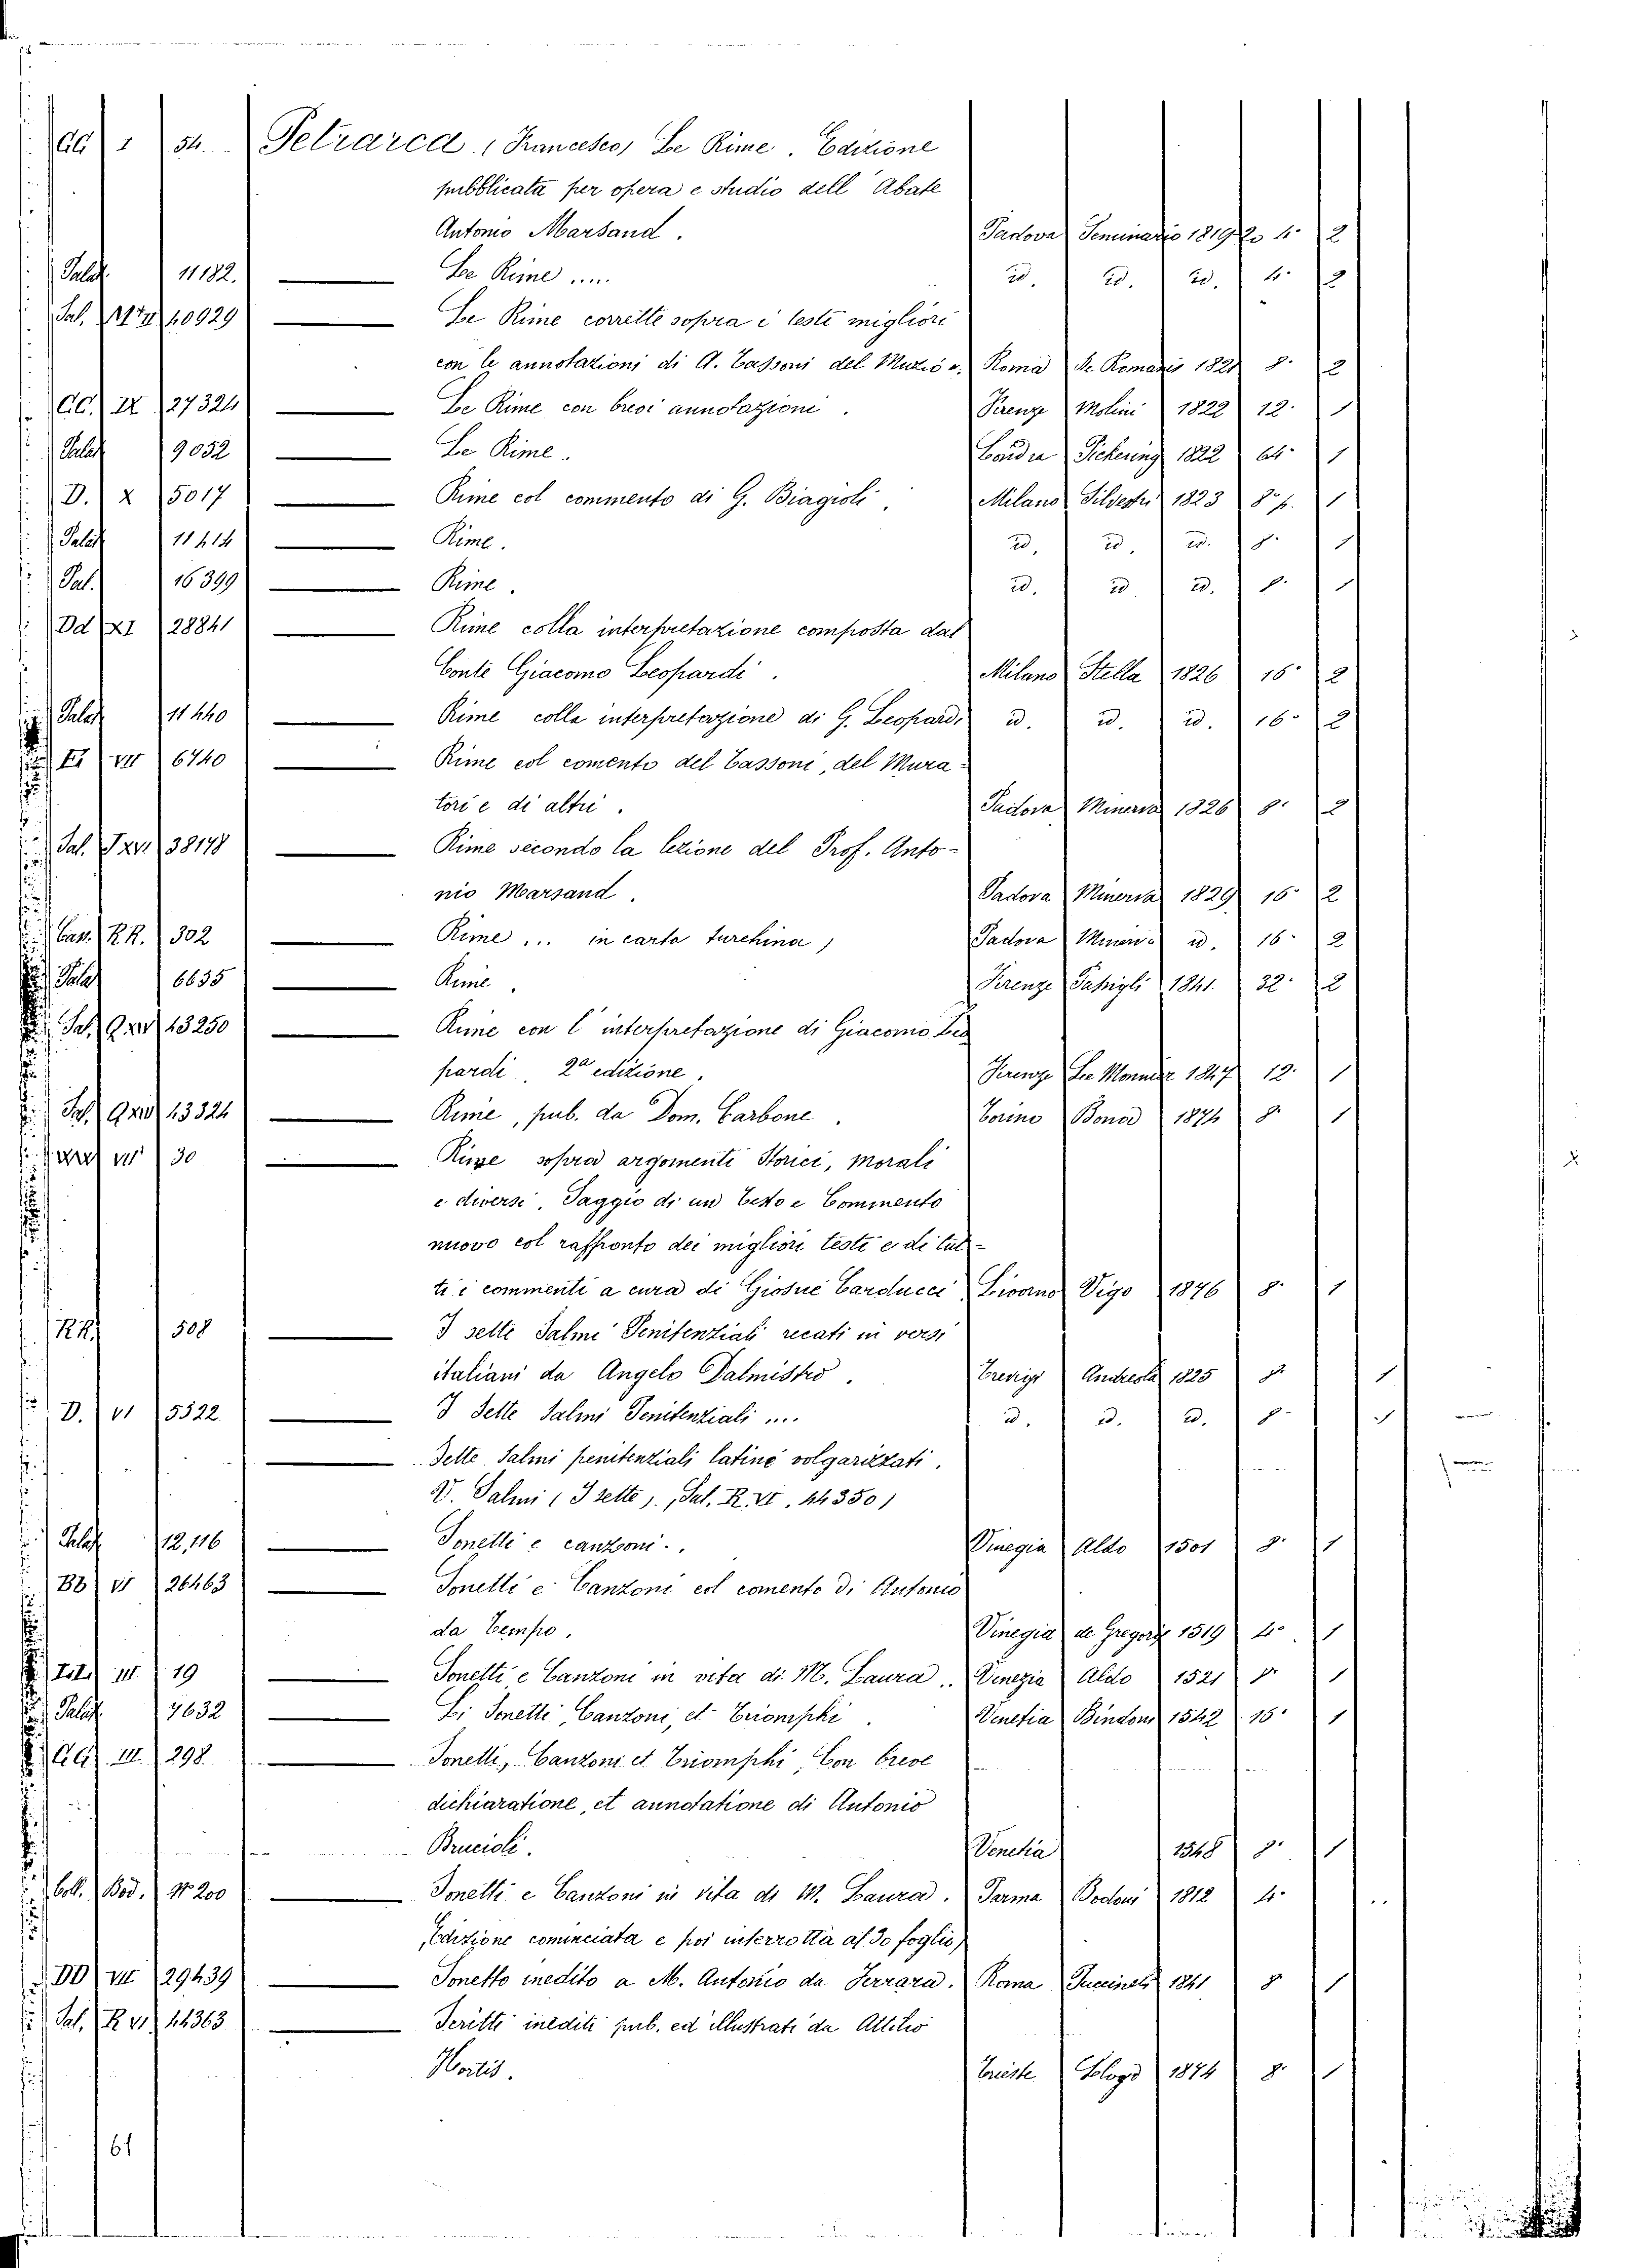 GG 1 54. Petrarca (Francesco) Le Rime. Edizione
pubblicata per opera e studio dell' Abate
Antonio Marsand. Padova Seminario 1819-20 4° 2
Palat 11182. Le Rime ..... id. id. id. 4° 2
Sal. 40929 Le Rime corrette sopra i testi migliori
con le annotazioni di A. Tassoni del Muzio e. Roma De Romanis 1821 8° 2
CC. IX 27324 Le Rime con brevi annotazioni. Firenze Molini 1822 12° 1
Palat 9052 Le Rime. Londra Pickering 1822 64° 1
D. X 5017 Rime col commento di G. Biagioli. Milano Silvestri 1823 8° p. 1
Palat 11414 Rime. id. id. id. 8° 1
Pal. 16399 Rime. id. id. id. 8° 1
Dd XI 28841 Rime colla interpretazione composta dal
Conte Giacomo Leopardi. Milano Stella 1826 16° 2
Palat 11440 Rime colla interpretazione di G. Leopardi id. id. id. 16° 2
VII 6740 Rime col comento del Tassoni, del Mura-
tori e di altri. Padova Minerva 1826 8° 2
Sal. XVI 38148 Rime secondo la lezione del Prof. Anto-
nio Marsand. Padova Minerva 1829 16° 2
Cass. RR. 302 Rime ... in carta turchina) Padova Minerva id. 16° 2
Palat 6635 Rime. Firenze Passigli 1841. 32° 2
Sal. 43250 Rime con l'interpretazione di Giacomo Leo
pardi. 2ª edizione. Firenze Le Monnier 1847 12° 1
Sal. 43324 Rime, pub. da Dom. Carbone. Torino Bona 1874 8° 1
VII 30 Rime sopra argomenti Storici, Morali
e diversi, Saggio di un Testo e Commento
nuovo col raffronto dei migliori testi e di tut-
ti i commenti a cura di Giosuè Carducci Livorno Vigo 1876 8° 1
RR. 508 I sette Salmi Penitenziali recati in versi
italiani da Angelo Dalmistro. Trevigi Andreola 1825 8° 1
D. VI 5322 I Sette Salmi Penitenziali .... id. id. id. 8° 1
Sette Salmi penitenziali latini volgarizzati.
V. Salmi (I sette). (Sal. R. VI. 44350)
Palat 12,116 Sonetti e canzoni.. Vinegia Aldo 1501 8° 1
Bb VI 26463 Sonetti e Canzoni col comento di Antonio
da Tempo. Vinegia de Gregorij 1519 4° 1
III 19 Sonetti e Canzoni in vita di M. Laura.. Venezia Aldo 1521 8° 1
Palat. 7632 Li Sonetti, Canzoni, et Triomphi. Venetia Bindoni 1542 15° 1
GG III. 298. Sonetti, Canzoni et Triomphi, Con breve
dichiaratione, et annotatione di Antonio
Brucioli. Venetia 1548 8° 1
Coll. Bod. N° 200 Sonetti e Canzoni in vita di M. Laura. Parma Bodoni 1812 4°
(Edizione cominciata e poi interrotta al 30 foglio)
DD VII 29439 Sonetto inedito a M. Antonio da Ferrara. Roma Puccinelli 1841 8 1
Sal. R VI 44363 Scritti inediti pub. ed illustrati da Attilio
Hortis. Trieste 1874 8° 1
61